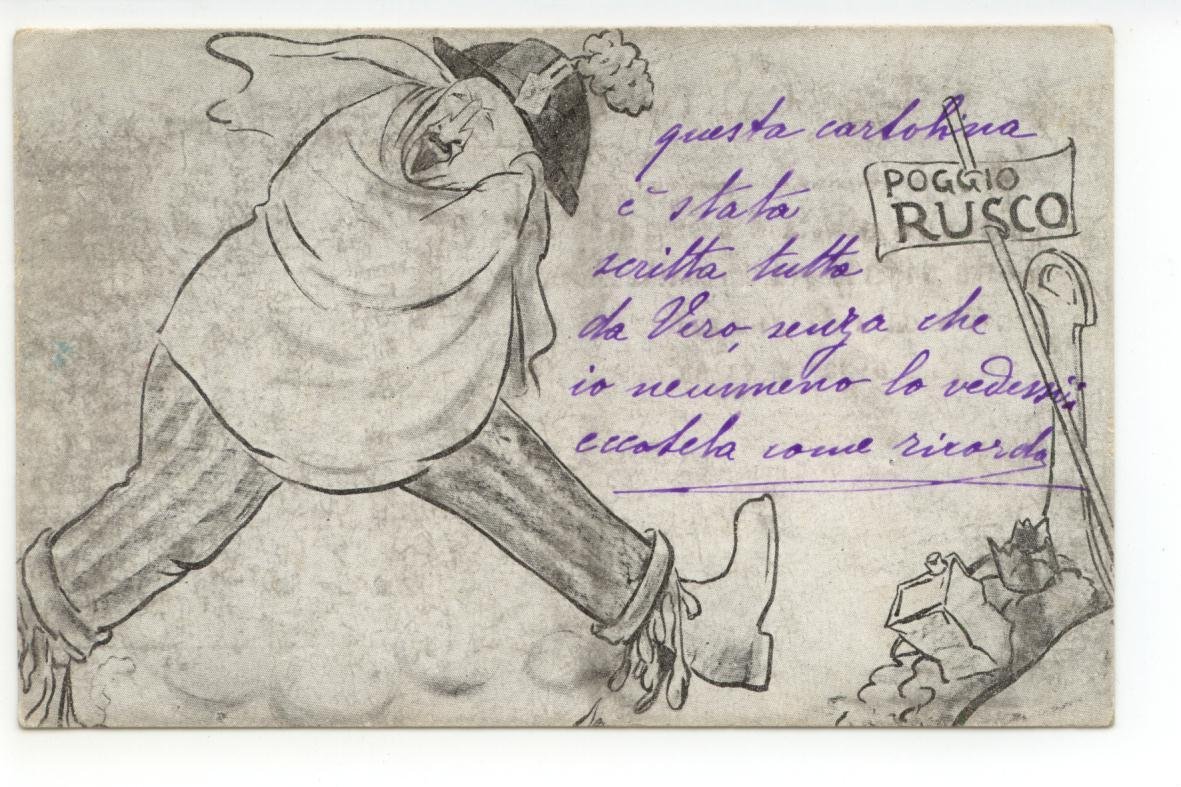 questa cartolina
è stata
scritta tutta
da Vero, senza che
io neummeno lo vedessi:
eccotela come ricordo
POGGIO
RUSCO